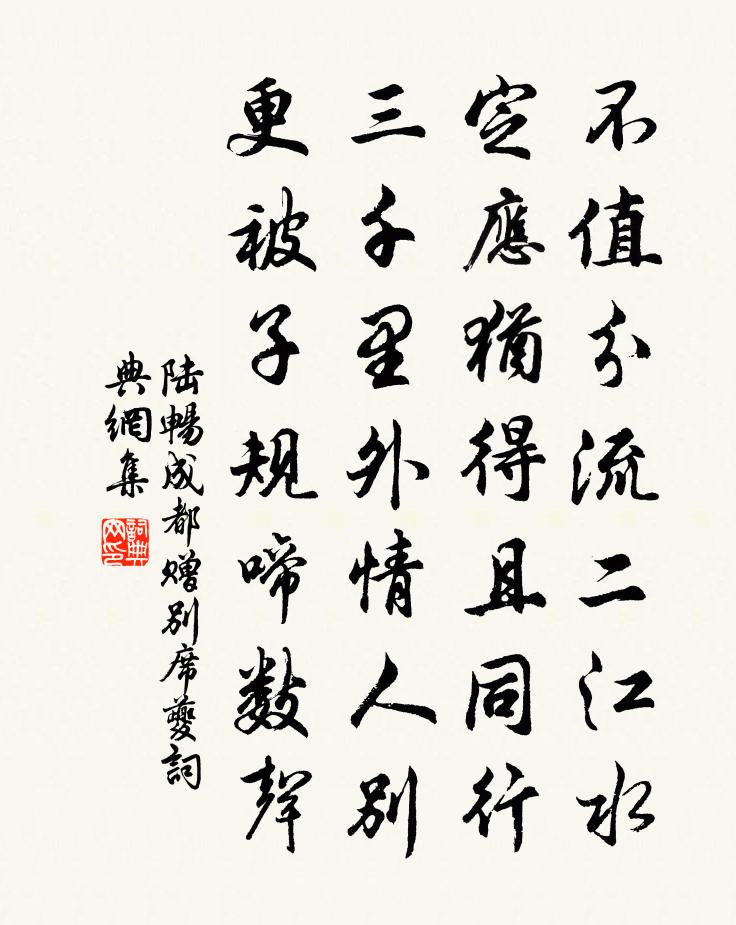 不值分流二江水
定應猶得且同行
三千里外情人別
更被子規啼數聲
陸暢成都贈別席夔詞
典網集
詞典
网印